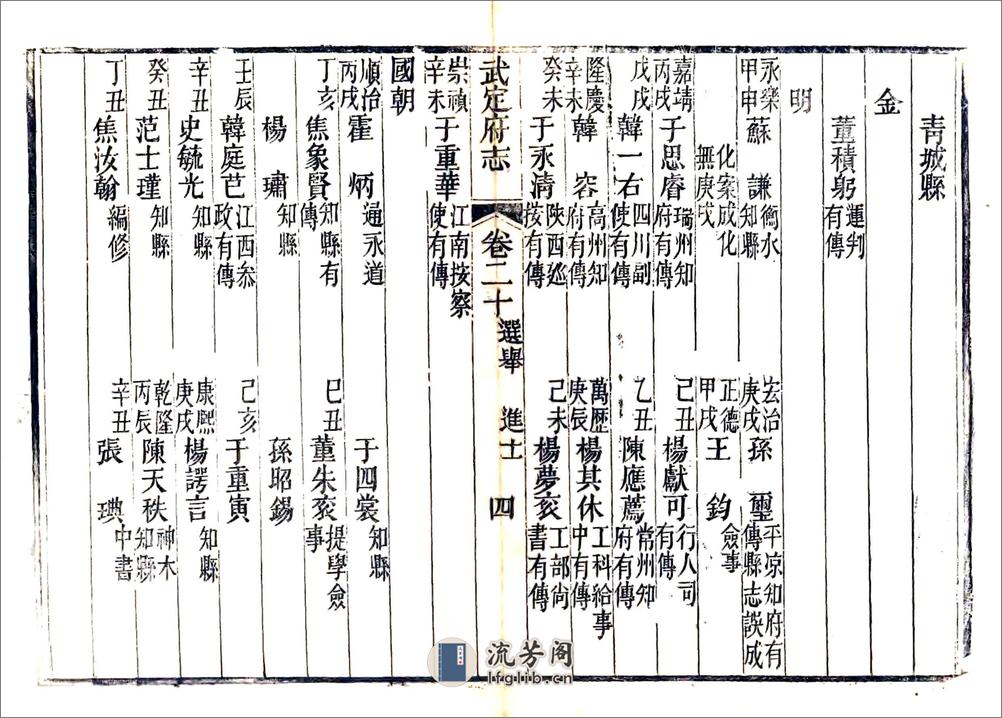 青城縣
金
董積躬 運判有傳
明
永樂甲申 蘇謙 衡水知縣 宏治庚戌 孫璽 平凉知府有傳縣志誤成
化案成化無庚戌 正德甲戌 王鈞 僉事
嘉靖丙戌 于思睿 瑞州知府有傳 己丑 楊獻可 行人司有傳
戊戌 韓一右 四川副使有傳 乙丑 陳應薦 常州知府有傳
隆慶辛未 韓容 高州知府有傳 萬歷庚辰 楊其休 工科給事中有傳
癸未 于永清 陝西廵按有傳 己未 楊夢衮 工部尚書有傳
武定府志 卷二十 選舉 進士 四
崇禎辛未 于重華 江南按察使有傳
國朝
順治丙戌 霍炳 通永道 于四裳 知縣
丁亥 焦象賢 知縣有傳 己丑 董朱衮 提學僉事
楊璛 孫昭錫
壬辰 韓庭芑 江西叅政有傳 己亥 于重寅
辛丑 史毓光 知縣 康熙庚戌 楊諤言 知縣
癸丑 范士瑾 知縣 乾隆丙辰 陳天秩 神木知縣
丁丑 焦汝翰 編修 辛丑 張琠 中書
流芳阁
lfglib.cn